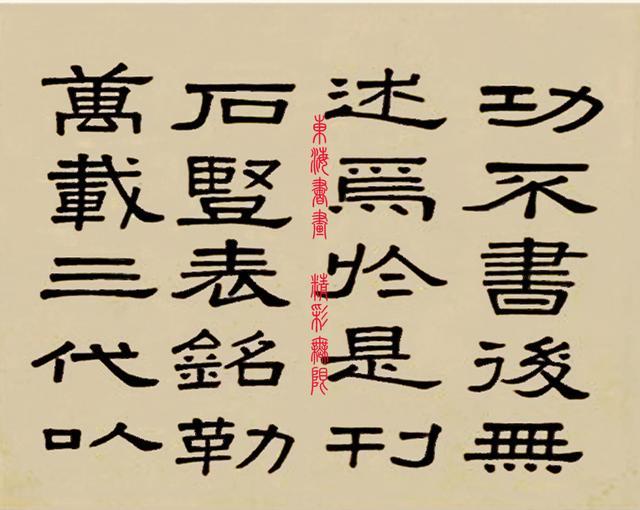 功不書後無
述焉於是刊
石豎表銘勒
萬載三代以
東海書畫 精彩無限